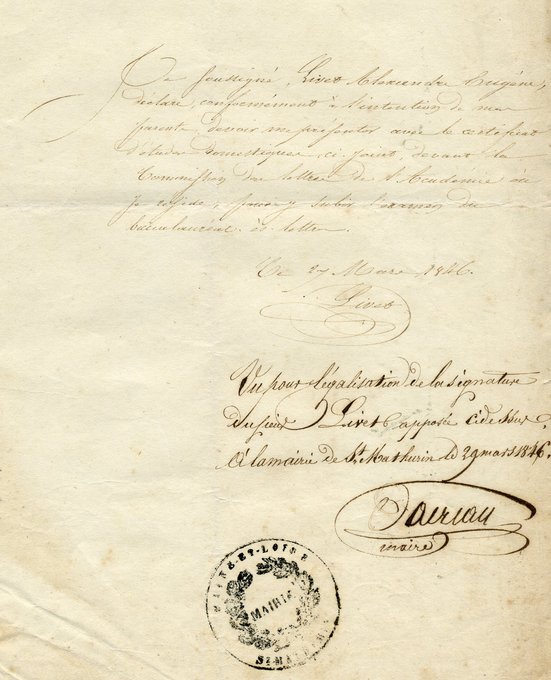 Je soussigné, Livet Alexandre Eugène,
déclare, conformément à l'intention de mes
parents, devoir me présenter avec le certificat
d'études domestiques, ci-joint, devant la
Commission des lettres de l'Académie où
je réside, pour y subir l'examen du
baccalauréat ès-lettres
Ce 27 Mars 1846.
Livet
Vu pour légalisation de la signature
du sieur Livet apposée ci dessus
à la mairie de St Mathurin le 29 mars 1846.
maire
MAINE-ET-LOIRE
MAIRIE